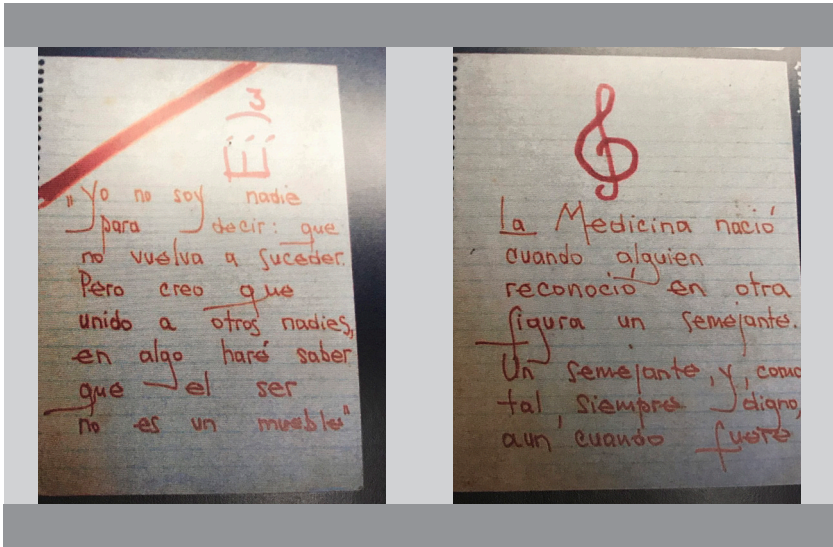 „Yo no soy nadie
para decir: que
no vuelva a suceder.
Pero creo que
unido a otros nadies,
en algo haré saber
que el ser
no es un mueble"
La Medicina nació
cuando alguien
reconoció en otra
figura un semejante.
Un semejante, y, como
tal, siempre digno,
aun, cuando fuere